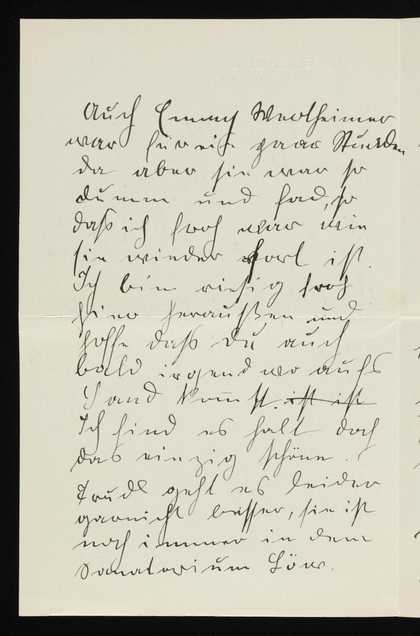 Auch Emmy Wertheimer
war für ein paar Stunden
da aber sie war so
dumm und fad, so
daß ich froh war wie
sie wieder fort ist.
Ich bin riesig froh
hier heraußen und
hoffe daß du auch
bald irgendwo aufs
Land kommst. ist ist
Ich find es halt doch
das einzig schöne.
Trudl geht es leider
garnicht besser, sie ist
noch immer in dem
Sanatorium Löw.